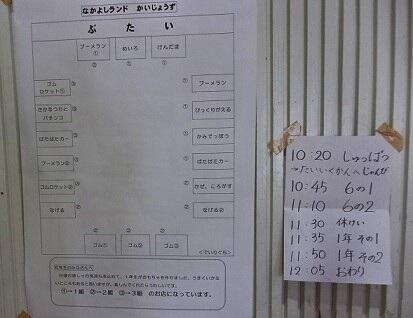 なかよしランド かいじょうず
ぶたい
ブーメラン① めいろ けんだま
② ① ②
ゴムロケット① ③
① ブーメラン
さかなつりとパチンコ ③
① びっくりがえる
ぱたぱたカー ③
② かみでっぽう
ブーメラン② ③
① ぱたぱたカー
ゴムロケット② ③
② かぜ、ころがす
なげる ③
② なげる②
ゴム① ゴム② ゴム③
① ② ③
<でいりぐち>
①→1組 ②→2組 ③→3組 のお店になっています。
10:20 しゅっぱつ
→たいいくかんへ じゅんび
10:45 6の1
11:10 6の2
11:30 休けい
11:35 1年 その1
11:50 1年 その2
12:05 おわり